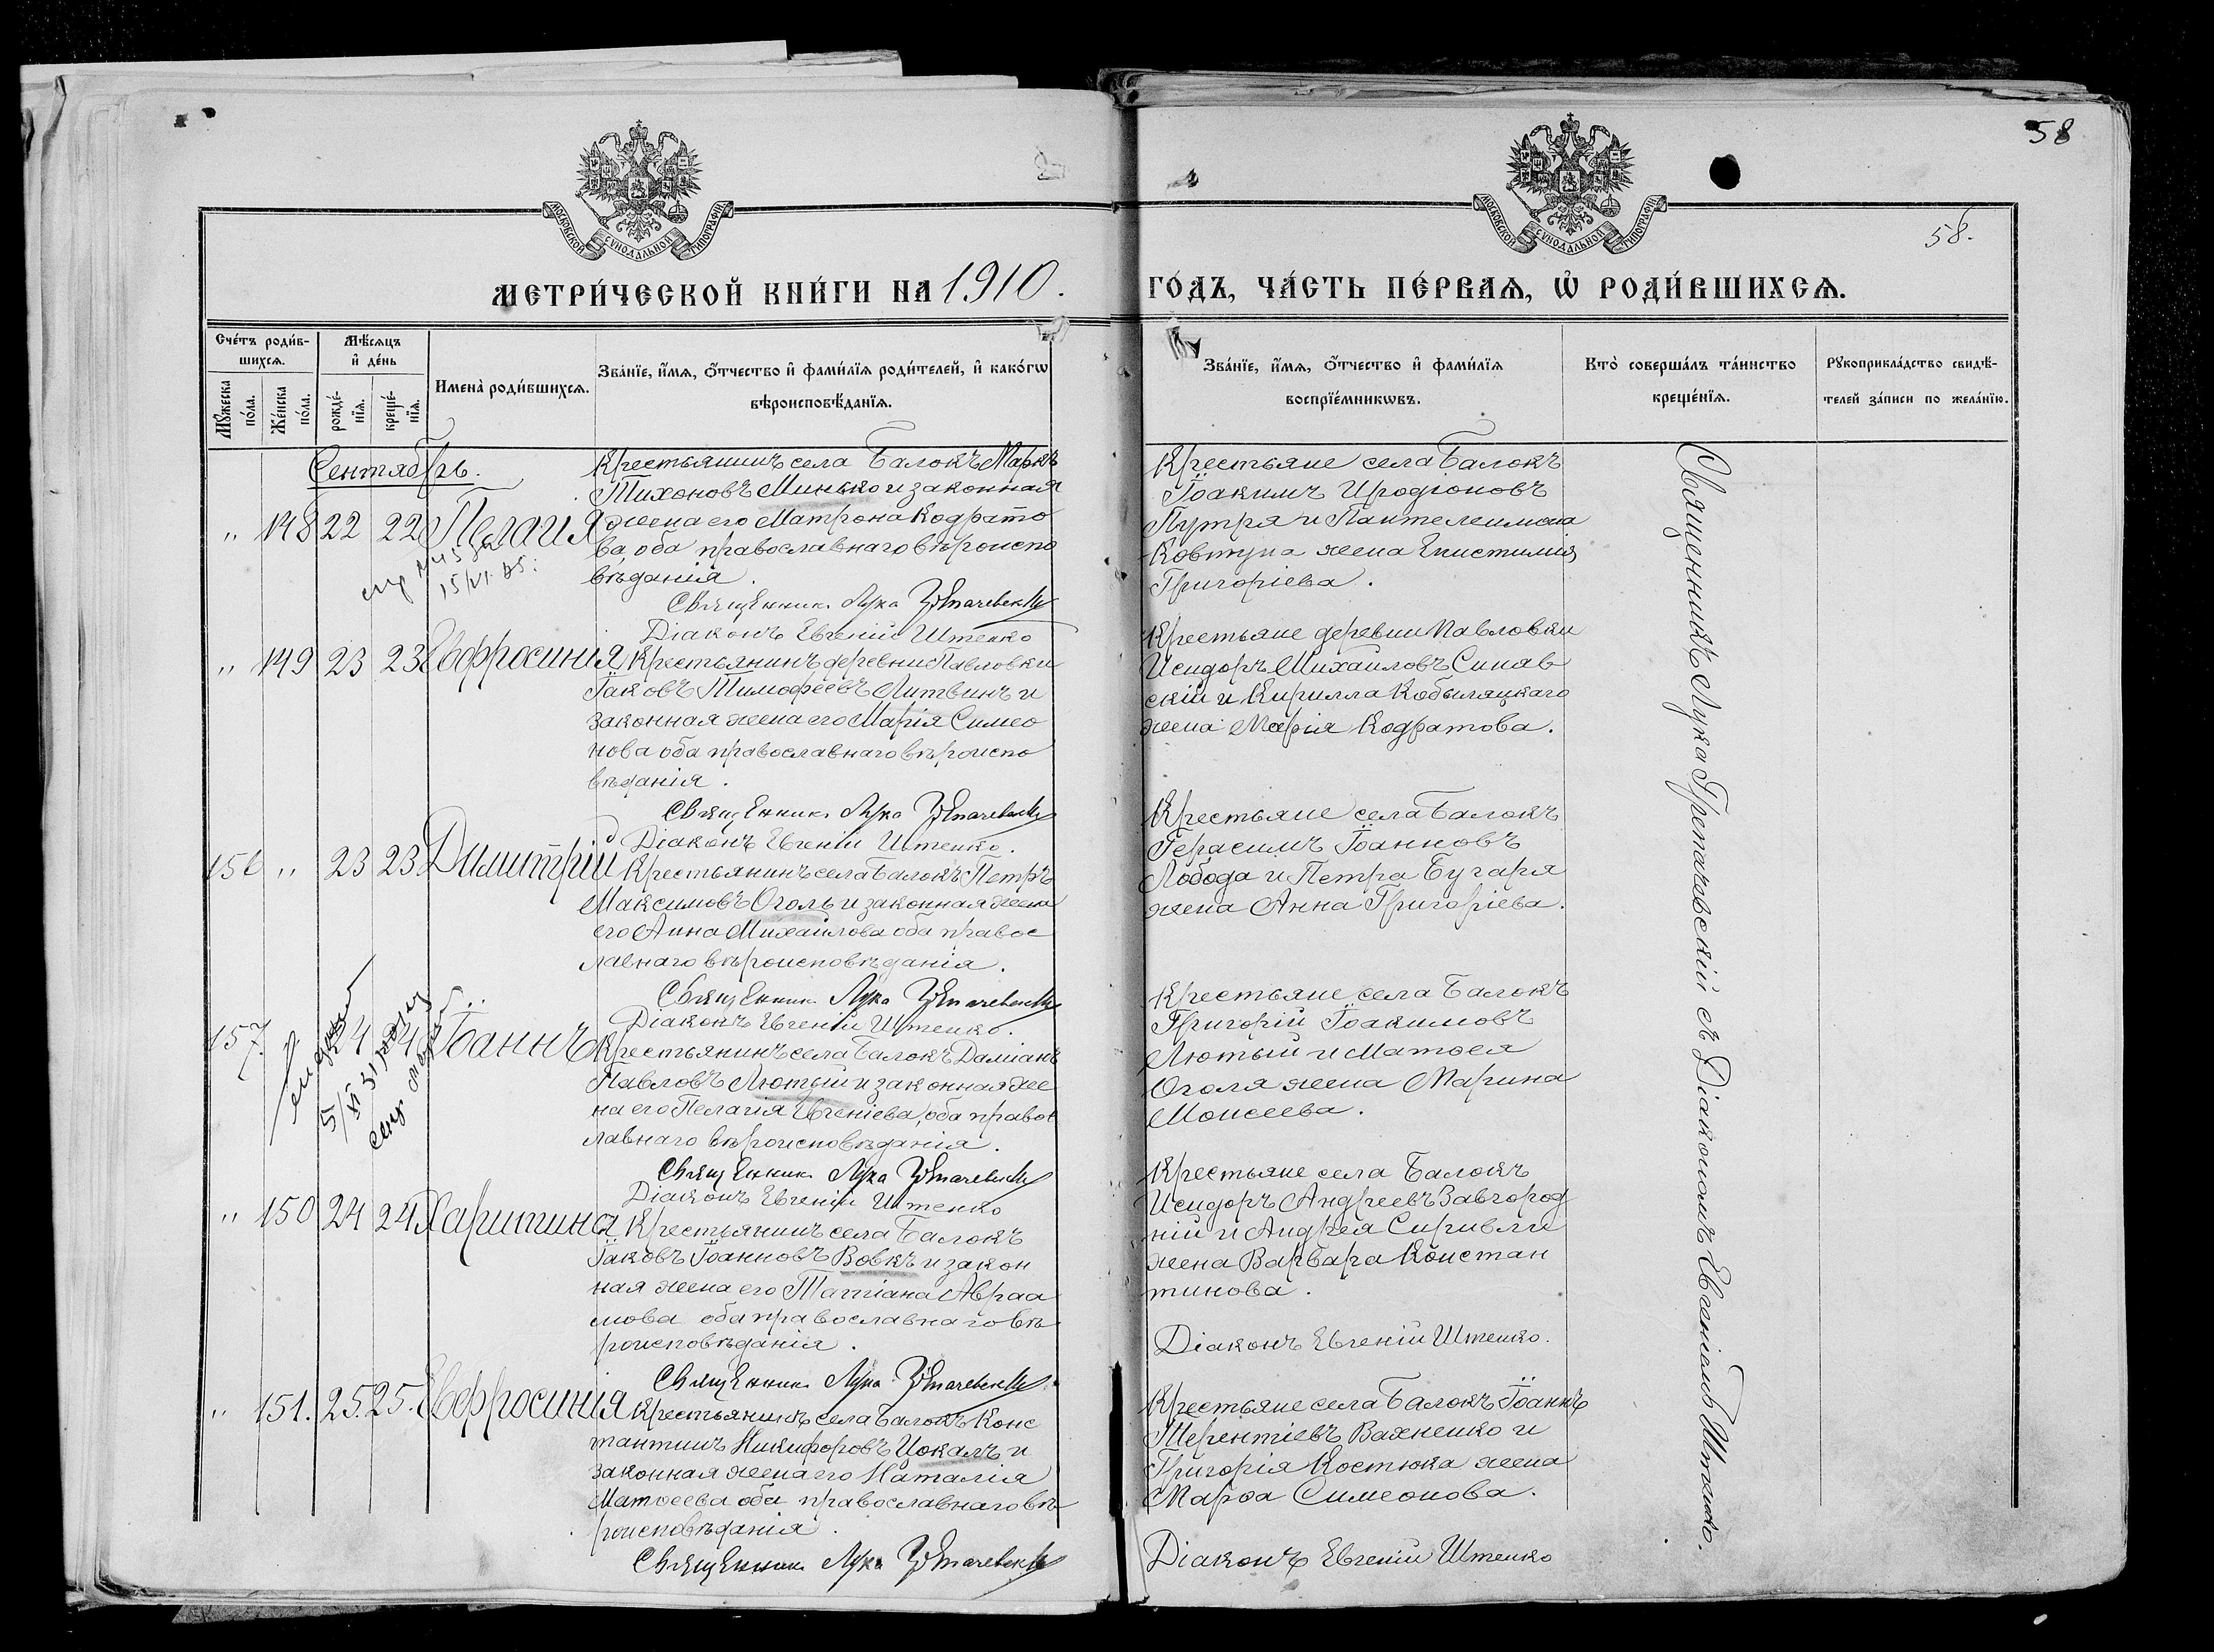 58
МОСКОВСКОЙ СѴНОДАЛЬНОЙ ТИПОГРАФІИ
МОСКОВСКОЙ СѴНОДАЛЬНОЙ ТИПОГРАФІИ
58.
МЕТРИ́ЧЕСКОЙ КНИ́ГИ НА 1910.
ГО́ДЪ, ЧА́СТЬ ПЕ́РВАѦ, Ѡ҆ РОДИ́ВШИХСѦ.
Сче́тъ роди́в-
шихсѧ.
Мꙋ́жеска по́ла.
Же́нска по́ла.
Мѣ́сѧцъ
и҆ де́нь
рожде́-
нїѧ.
креще́-
нїѧ.
Имена̀ роди́вшихсѧ.
Зва́нїе, и҆́мѧ, ѻ҆́тчество и҆ фами́лїѧ роди́телей, и҆ како́гѡ
вѣроисповѣ́данїѧ.
Зва́нїе, и҆́мѧ, ѻ҆́тчество и҆ фами́лїѧ
воспрїе́мникѡвъ.
Кто̀ соверша́лъ та́инство
креще́нїѧ.
Рꙋкоприкла́дство свидѣ́-
телей за́писи по жела́нїю.
Сентябрь.
" 148 22 22 Пелагія
Крестьянинъ села Балокъ Маркъ
Тихоновъ Минько и законная
жена его Матрона Кодрато
ва оба православнаго вѣроиспо
вѣданія.
Священник Лука
Діаконъ Евгеній Штепко
Крестьяне села Балокъ
Іоакимъ Иродіоновъ
Путря и Пантелеимона
Ковтуна жена Епистимія
Григоріева.
" 149 23 23 Евфросинія
Крестьянинъ деревни Павловки
Іаковъ Тимофеевъ Литвинъ и
законная жена его Марія Симео
нова оба православнаго вѣроиспо
вѣданія.
Священник Лука
Діаконъ Евгеній Штепко.
Крестьяне деревни Павловки
Исидоръ Михаиловъ Синяв
скій и Кирилла Кобыляцкаго
жена Марія Кодратова.
156 " 23 23 Димитрій
Крестьянинъ села Балокъ Петръ
Максимовъ Оголь и законная жена
его Анна Михаилова оба правос
лавнаго вѣроисповѣданія.
Священник Лука
Діаконъ Евгеній Штепко.
Крестьяне села Балокъ
Герасимъ Іоанновъ
Лобода и Петра Бугаря
жена Анна Григоріева.
157. 24 24 Іоаннъ
Крестьянинъ села Балокъ Даміанъ
Павловъ Лютый и законная же
на его Пелагія Евгеніева, оба правос
лавнаго вѣроисповѣданія.
Священник Лука
Діаконъ Евгеній Штепко
Крестьяне села Балокъ
Григорій Іоакимовъ
Лютый и Матѳея
Оголя жена Марина
Моисеева.
" 150 24 24 Харитина
Крестьянинъ села Балокъ
Іаковъ Іоанновъ Вовкъ и закон
ная жена его Татіана Авраа
мова оба православнаго вѣ
роисповѣданія.
Священник Лука
Крестьяне села Балокъ
Исидоръ Андреевъ Завгород
ній и Андрея Сиривли
жена Варвара Констан
тинова.
Діаконъ Евгеній Штепко.
" 151. 25. 25. Евфросинія
Крестьянинъ села Балокъ Конс
тантинъ Никифоровъ Цокалъ и
законная жена его Наталія
Матѳеева оба православнаго вѣ
роисповѣданія.
Священник Лука
Крестьяне села Балокъ Іоаннъ
Терентіевъ Вахненко и
Григорія Костюка жена
Марѳа Симеонова.
Діаконъ Евгеній Штепко
Священникъ Лука съ Діакономъ Евгеніемъ Штепко.